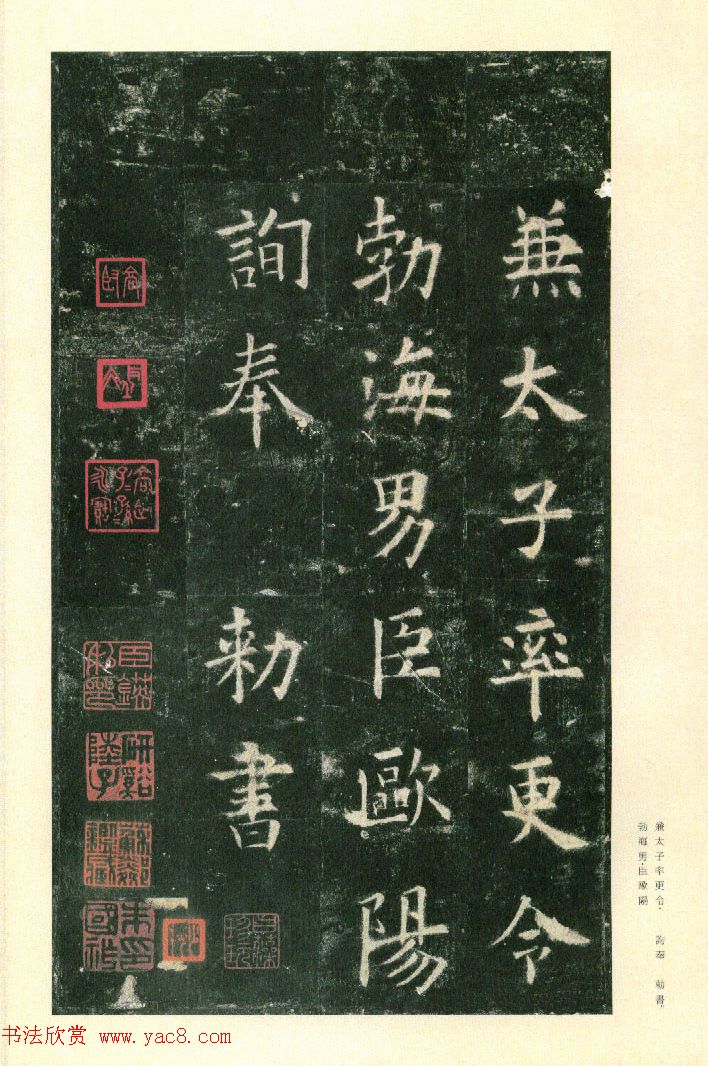 兼太子率更令
勃海男臣歐陽
詢奉 勅書
兼太子率更令·
勃海男·臣歐陽
詢奉 勅書。
书法欣赏 www.yac8.com